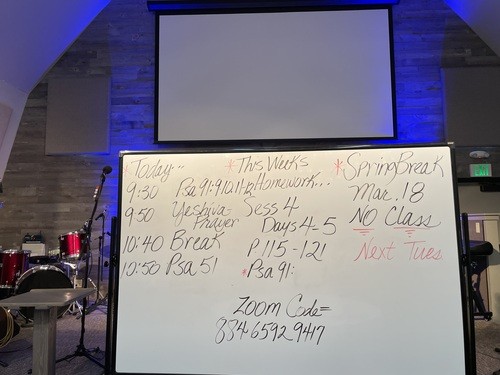 Today..
9:30 Psa 91:9,10,11,12
9:50 Yeshiva-
Prayer
10:40 Break
10:50 Psa 51
*This Weeks
Homework...
Sess 4
Days 4-5
P 115-121
*Psa 91:
*Spring Break
Mar. 18
NO Class
Next Tues
Zoom Code=
884 6592 9417